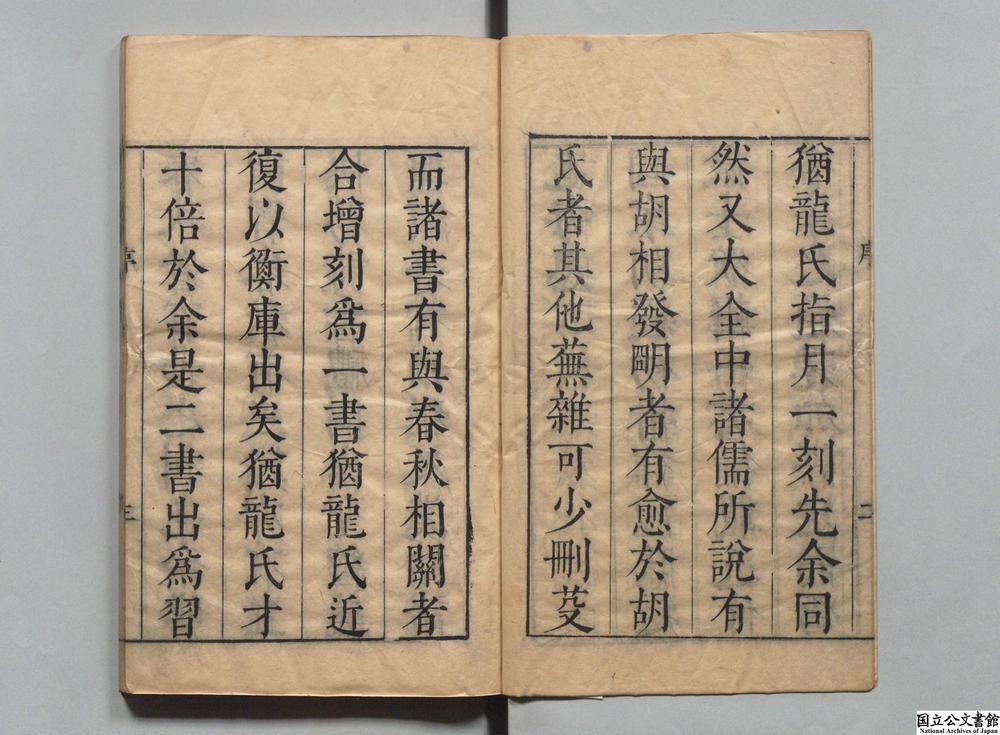 猶龍氏指月一刻先余同
然又大全中諸儒所說有
與胡相發明者有愈於胡
氏者其他蕪雜可少刪芟
而諸書有與春秋相關者
合增刻爲一書猶龍氏近
復以衡庫出矣猶龍氏才
十倍於余是二書出爲習
序
二
序
三
国立公文書館
National Archives of Japan